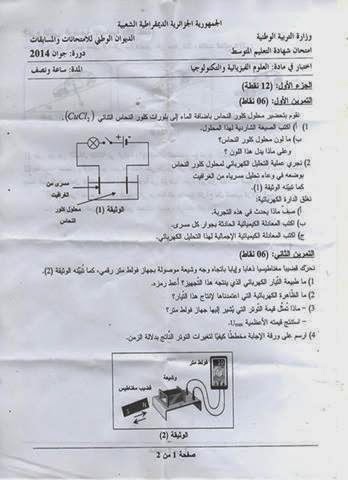 الجمهورية الجزائرية الديمقراطية الشعبية
وزارة التربية الوطنية
الديوان الوطني للامتحانات والمسابقات
امتحان شهادة التعليم المتوسط
دورة: جوان 2014
اختبار في مادة: العلوم الفيزيائية والتكنولوجيا
المدة: ساعة ونصف
الجزء الأول: (12 نقطة)
التمرين الأول: (06 نقاط)
نقوم بتحضير محلول كلور النحاس بإضافة الماء إلى بلورات كلور النحاس الثنائي (CuCl2).
1) أ) اكتب الصيغة الشاردية لهذا المحلول.
ب) ما لون محلول كلور النحاس؟
وعلى ماذا يدل هذا اللون؟
2) نجري عملية التحليل الكهربائي لمحلول كلور النحاس
بوضعه في وعاء تحليل مسرياه من الغرافيت
كما تبيّنه الوثيقة (1).
نغلق الدارة الكهربائية:
أ) صف ماذا يحدث في هذه التجربة.
ب) اكتب المعادلة الكيميائية الحادثة بجوار كل مسرى.
ج) اكتب المعادلة الكيميائية الإجمالية لهذا التحليل الكهربائي.
مسرى من
الغرافيت
محلول كلور
النحاس
الوثيقة (1)
التمرين الثاني: (06 نقاط)
نحرك قضيبا مغناطيسيا ذهابا وإيابا باتجاه وجه وشيعة موصولة بجهاز فولط متر رقمي، كما تبيّنه الوثيقة (2).
1) ما طبيعة التيار الكهربائي الذي ينتجه هذا التجهيز؟ أعط رمزه.
2) ما الظاهرة الكهربائية التي اعتمدناها لإنتاج هذا التيار؟
3) - ماذا تمثّل قيمة التوتر التي يُشير إليها جهاز فولط متر؟
- استنتج قيمته الأعظمية
4) ارسم على ورقة الإجابة مخططًا كيفيًا لتغيرات التوتر الناتج بدلالة الزمن.
فولط متر
وشيعة
قضيب مغناطيس
الوثيقة (2)
صفحة 1 من 2